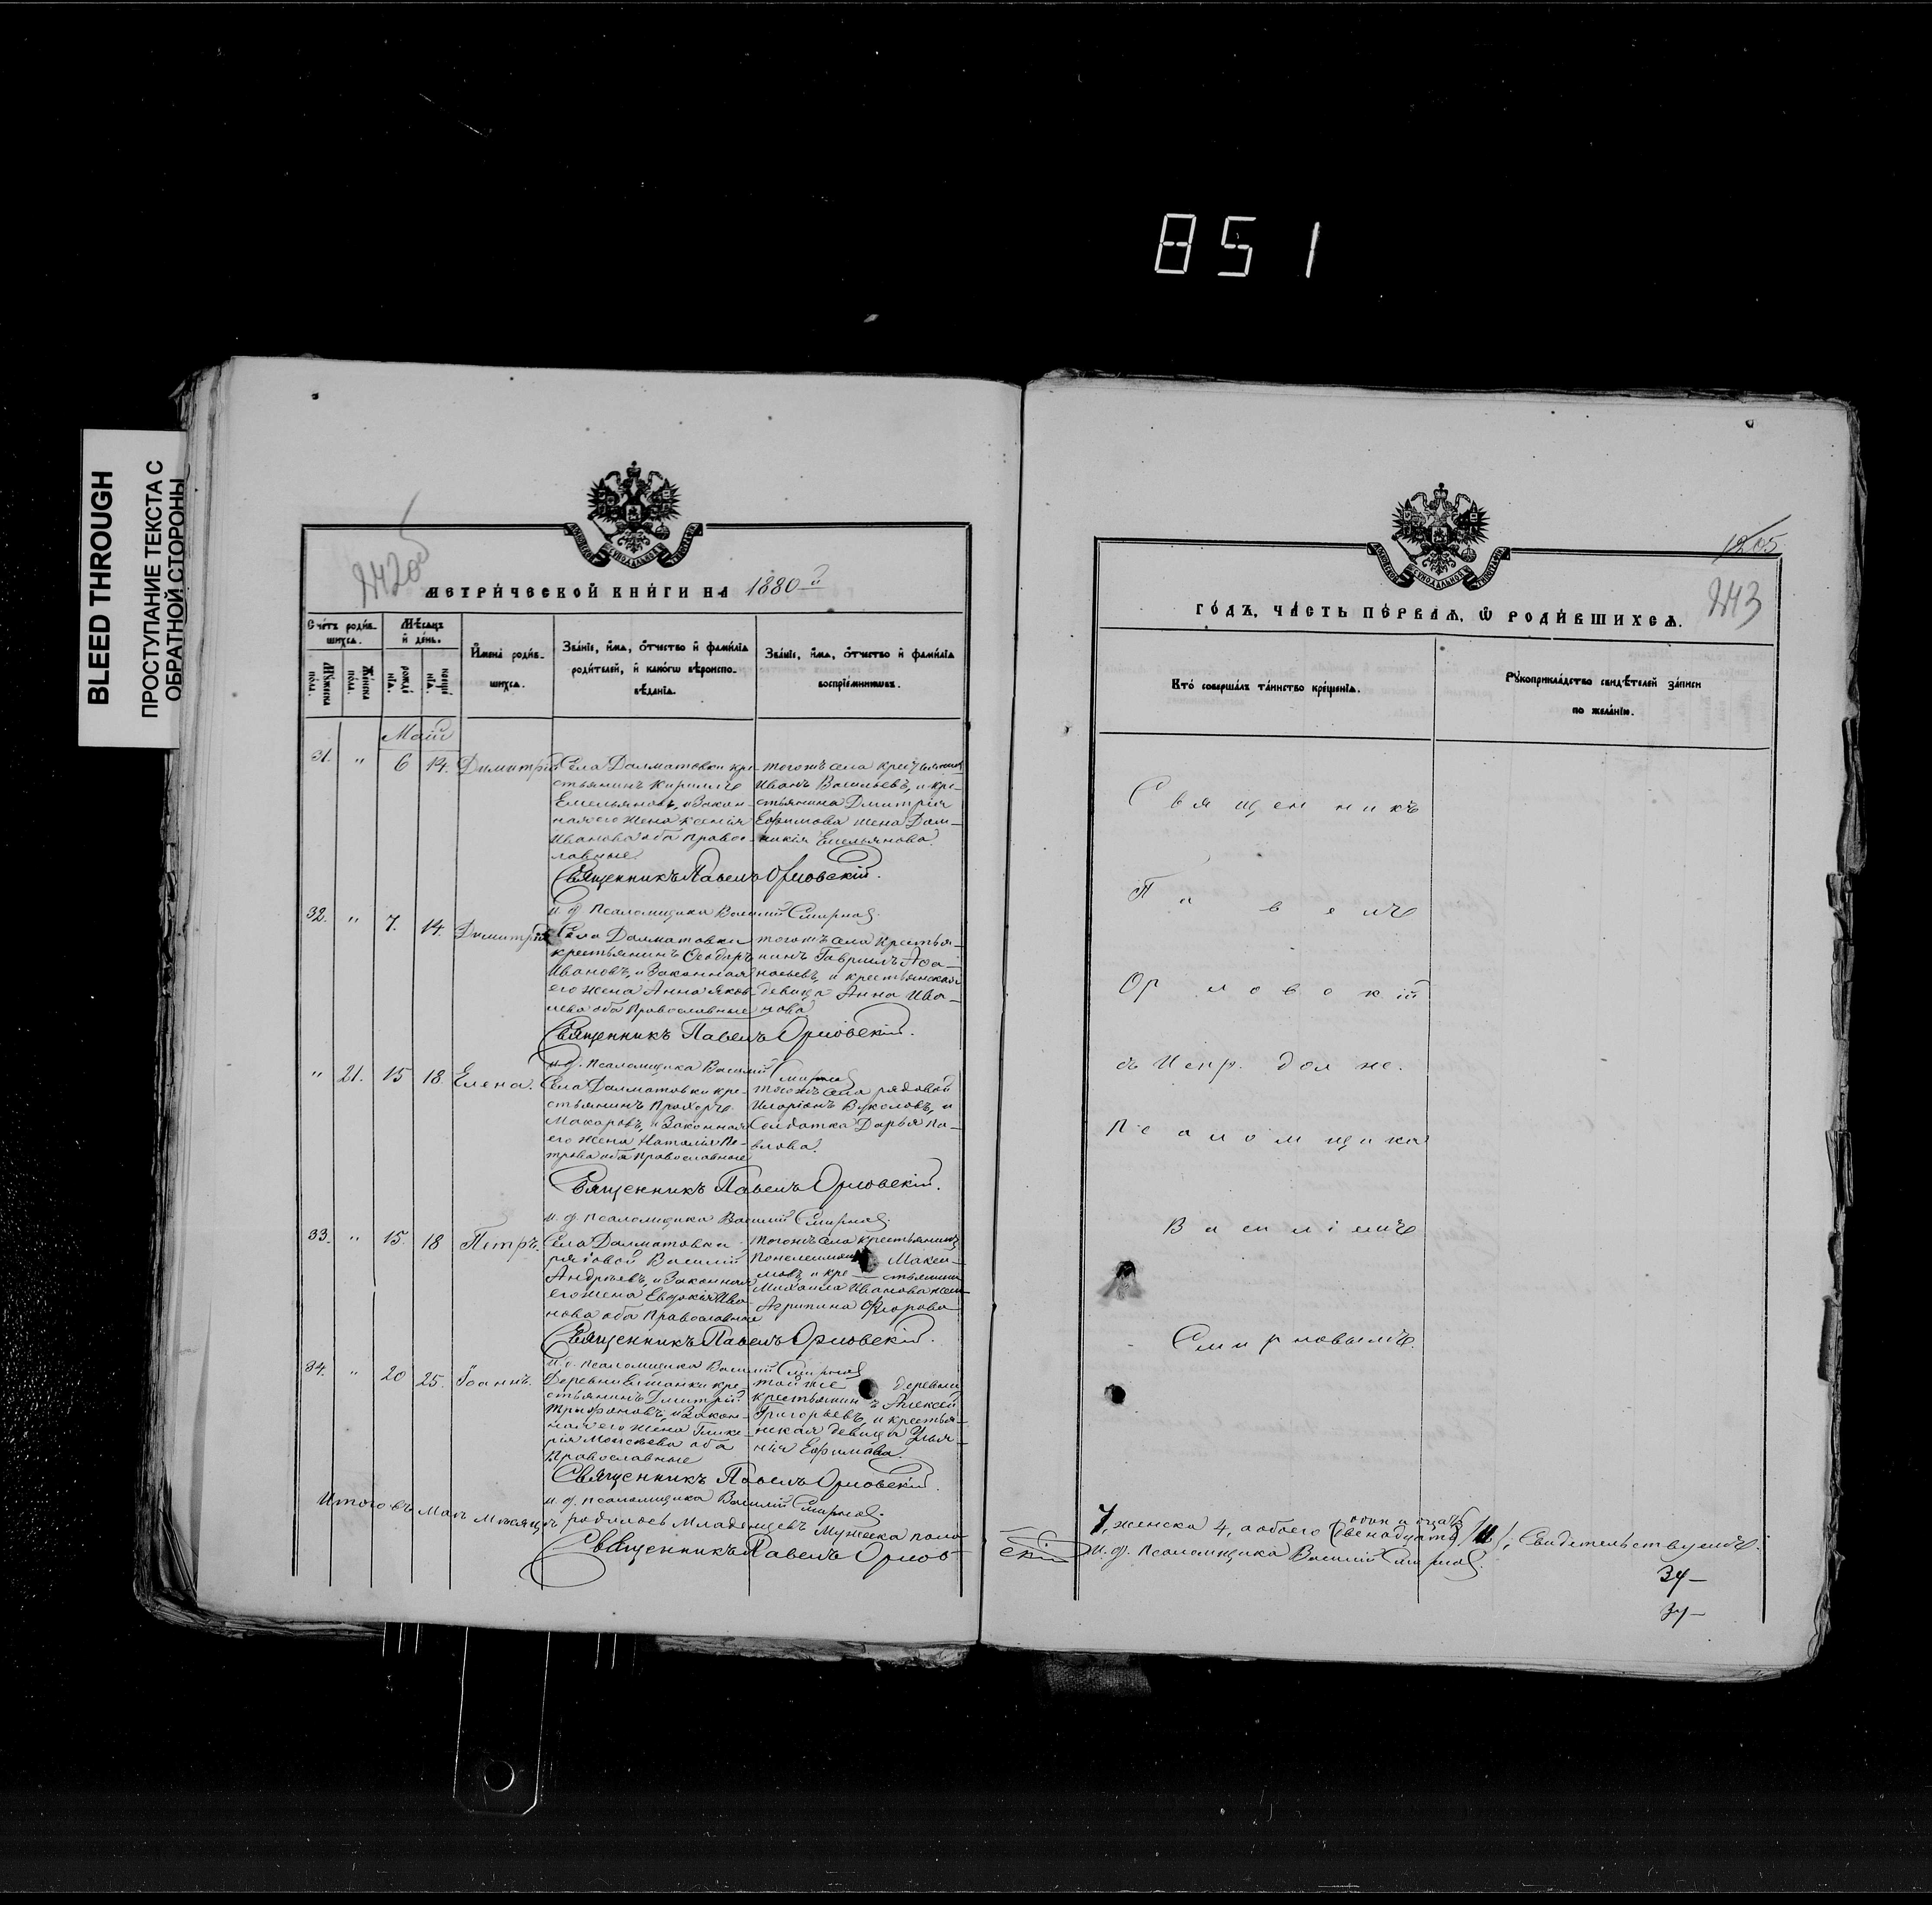 851
BLEED THROUGH
ПРОСТУПАНИЕ ТЕКСТА С
ОБРАТНОЙ СТОРОНЫ
МЕТРИ́ЧЕСКОЙ КНИ́ГИ НА 1880 й
Сче́тъ роди́в-
шихсѧ.
Мѣ́сѧцъ
и҆ де́нь.
Мꙋ́жеска
пола.
Же́нска
пола.
рожде́
нїѧ.
креще́
нїѧ.
И҆мена̀ роди́в-
шихсѧ.
Зва́нїе, и҆́мѧ, ѻ҆́тчество и҆ фами́лїѧ
роди́телей, и҆ како́гѡ вѣроиспо-
вѣ́данїѧ.
Зва́нїе, и҆́мѧ, ѻ҆́тчество и҆ фами́лїѧ
воспрїе́мникѡвъ.
Май
31. " 6 14. Димитрій
Села Далматовки кре-
стьянинъ Кириллъ
Емельяновъ, и закон-
ная его жена Ксенія
Иванова оба право-
славные
тогожъ села крестьянинъ
Иванъ Васильевъ, и кре-
стьянина Дмитрія
Ефимова жена Дом-
никія Емельянова.
Священникъ Павелъ Орловскій.
и. д. псаломщика Василій Смирнов
32. " 7. 14. Димитрій
Села Далматовки
крестьянинъ Ѳеодоръ
Ивановъ, и законная
его жена Анна Яков-
лева оба православные
тогожъ села крестья-
нинъ Гавріилъ Аѳа-
насьевъ, и крестьянская
девица Анна Ива-
нова
Священникъ Павелъ Орловскій.
и. д. псаломщика Василій Смирнов
" 21. 15 18. Елена.
Села Далматовки кре-
стьянинъ Прохоръ
Макаровъ, и законная
его жена Наталія Пе-
трова оба православные
тогожъ села рядовой
Иларіонъ Вуколовъ, и
солдатка Дарья Па-
влова.
Священникъ Павелъ Орловскій.
и. д. псаломщика Василій Смирнов
33. " 15. 18 Петръ.
Села Далматовки
рядовой Василій
Андреевъ, и законная
его жена Евдокія Ива-
нова оба православные
тогожъ села крестьянинъ
Макси-
мовъ, и кре- стьянина
Михаила Иванова жена
Агрипина Ѳдорова
Священникъ Павелъ Орловскій.
и. д. псаломщика Василій Смирнов
34. " 20 25. Іоаннъ.
Деревни кре-
стьянинъ Дмитрій
Трифоновъ, и закон-
ная его жена Глике-
рія Моисеева оба
православные
той же деревни
крестьянинъ Алексей
Григорьевъ, и крестья-
нская девица Улья-
нія Ефимова.
Священникъ Павелъ Орловскій.
и. д. псаломщика Василій Смирнов
Итого въ Маѣ месяцѣ родилось младенцевъ мужска пола
Священникъ Павелъ Орлов-
1205
243
ГО́ДЪ, ЧА́СТЬ ПЕ́РВАѦ, Ѡ РОДИ́ВШИХСѦ.
Кто̀ соверша́лъ та́инство креще́нїѧ.
Рꙋкоприкла́дство свидѣ́телей за́писи
по жела́нїю.
Священникъ
Павелъ
Орловскій
съ Испр. долж.
Псаломщика
Василіемъ
Смирновымъ.
7, женска 4, а обоего одинадцать (двенадцать) /11/, Свидетельствуемъ.
скій и. д. псаломщика Василій Смирнов
34-
34-